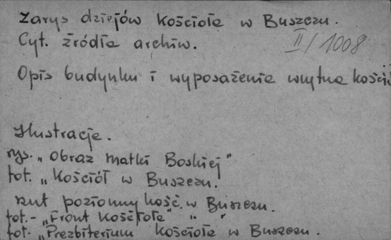 Zarys dziejów Kościoła w Buszczu.
Cyt. źródła archiw.
II/1008
Opis budynku i wyposażenia wnętrza kości
Ilustracje.
rys. "Obraz Matki Boskiej"
fot. "Kościół w Buszczu."
rzut poziomy kość. w Buszczu.
fot. - "Front Kościoła" - " - "
fot. "Prezbiterium Kościoła w Buszczu.